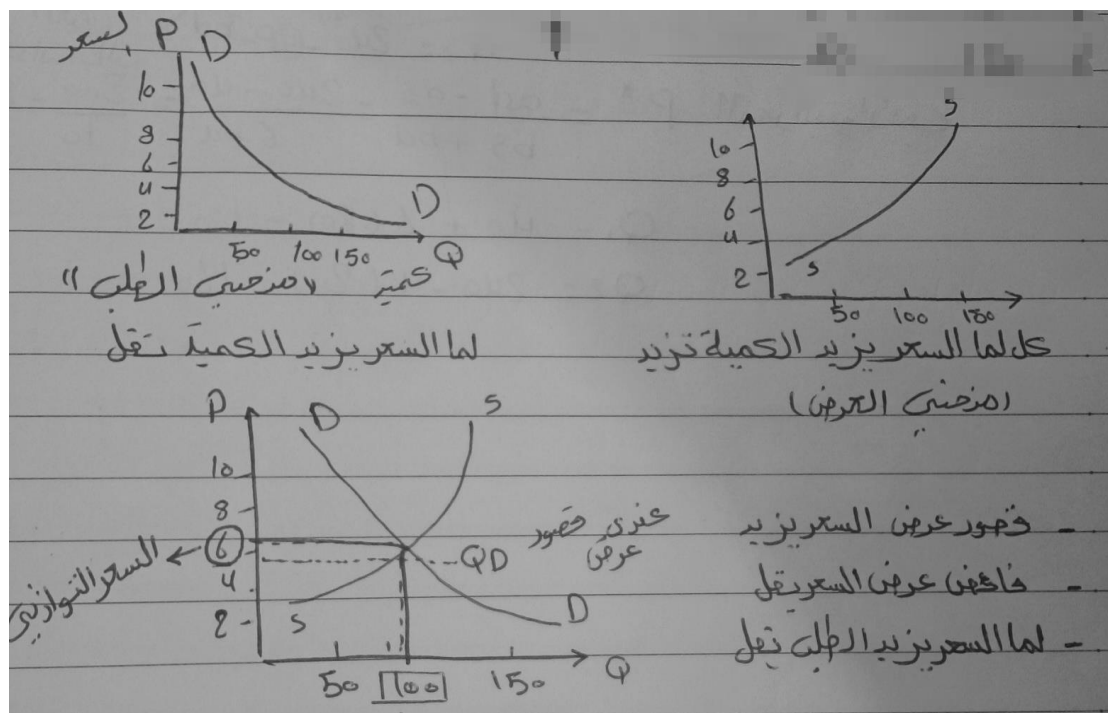 السعر P D
10
8
6
4
2
D
50 100 150 Q
كمية "منحنى الطلب"
لما السعر يزيد الكمية تقل
S
10
8
6
4
2
S
50 100 150
كل لما السعر يزيد الكمية تزيد
(منحنى العرض)
P D S
10
8
6
4
2
السعر التوازني
QD
S D
50 100 150 Q
عندي قصور
عرض
- قصور عرض السعر يزيد
- فائض عرض السعر يقل
- لما السعر يزيد الطلب يقل